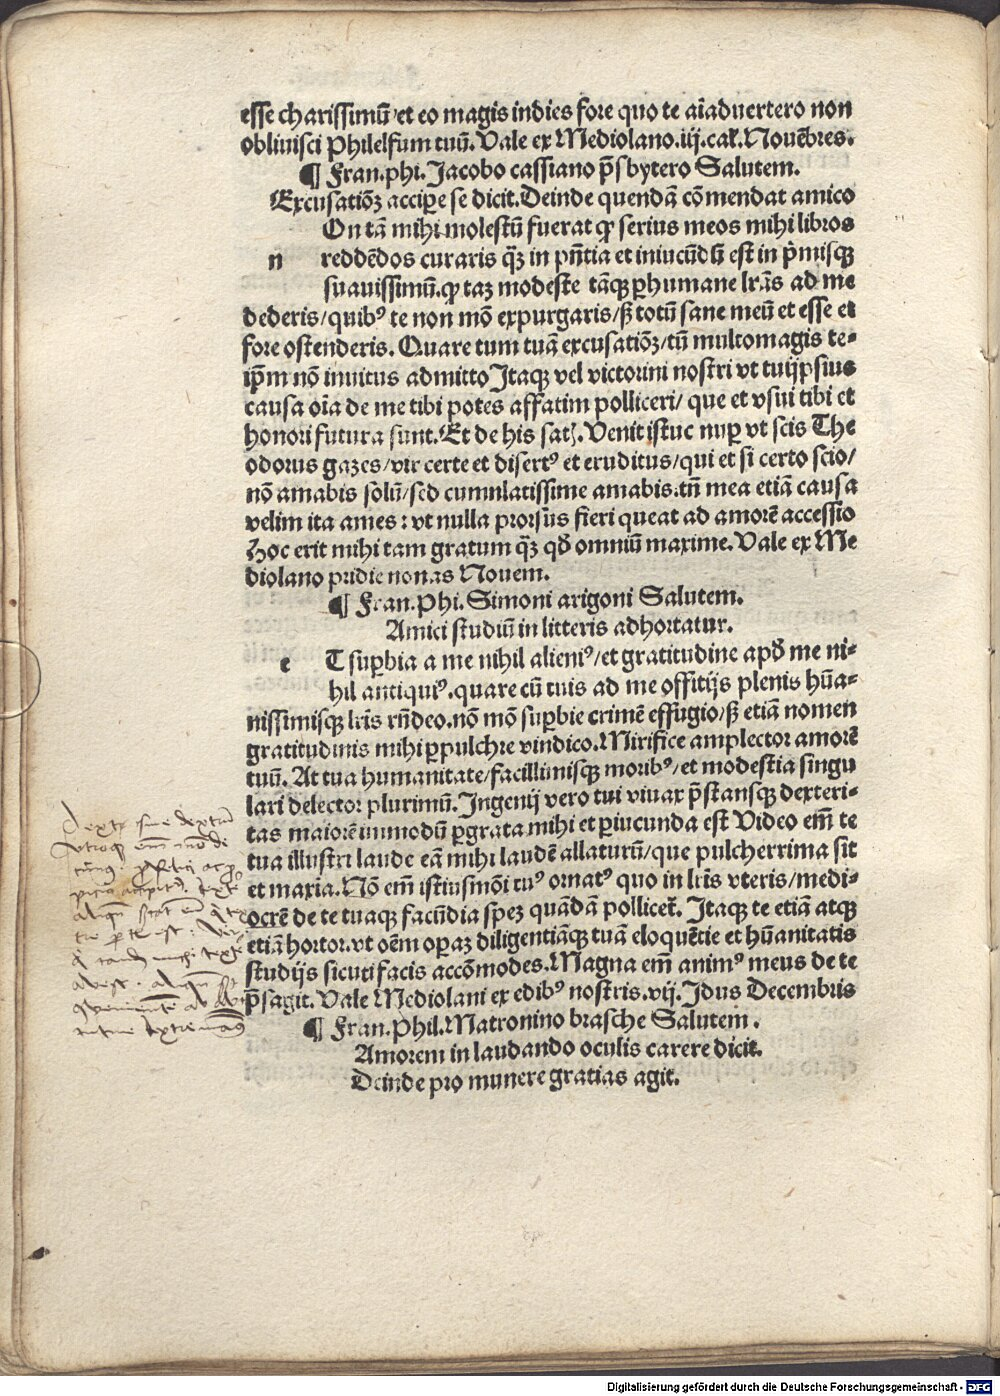 esse charissimū et eo magis indies fore quo te aīaduertero non
obliuisci Philelfum tuū. Vale ex Mediolano. iij. cal. Nouēbres.
¶ Fran. phi. Jacobo cassiano p̄sbytero Salutem.
Excusatiōꝫ accipe se dicit. Deinde quendā cōmendat amico
On tā mihi molestū fuerat ꝙ serius meos mihi libros
n reddēdos curaris qꝫ in pn̄tia et iniucūdū est in p̄misqꝫ
suauissimū. ꝙ taꝫ modeste tāqꝫ ꝑhumane lr̄as ad me
dederis/ quibꝰ te non mō expurgaris/ sꝫ totū sane meū et esse et
fore ostenderis. Quare tum tuā excusatiōꝫ/ tū multomagis te-
ip̄m nō inuitus admitto Itaqꝫ vel victorini nostri vt tuijpsius
causa oīa de me tibi potes affatim polliceri/ que et vsui tibi et
honori futura sunt. Et de his satꝭ. Venit istuc nuꝑ vt scis The
odorus gazes/ vir certe et disertꝰ et eruditus/ qui et si certo scio/
nō amabis solū/ sed cumnlatissime amabis. tn̄ mea etiā causa
velim ita ames: vt nulla prorsus fieri queat ad amorē accessio
Hoc erit mihi tam gratum qꝫ qd̄ omniū maxime. Vale ex Me
diolano pridie nonas Nouem.
¶ Fran. Phi. Simoni arigoni Salutem.
Amici studiū in litteris adhortatur.
e T suꝑbia a me nihil alieniꝰ/ et gratitudine apd̄ me ni-
hil antiquiꝰ. quare cū tuis ad me offitijs plenis hūa-
nissimisqꝫ lr̄is rn̄deo. nō mō suꝑbie crimē effugio/ sꝫ etiā nomen
gratitudinis mihi ꝑpulchre vindico. Mirifice amplector amorē
tuū. At tua humanitate/ facillimisqꝫ moribꝰ/ et modestia singu
lari delector plurimū. Ingenij vero tui viuax p̄stansqꝫ dexteri-
tas maiorē immodū ꝑgrata mihi et ꝑiucunda est Video em̄ te
tua illustri laude eā mihi laudē allaturū/ que pulcherrima sit
et maxīa. Nō em̄ istiusmōi tuꝰ ornatꝰ quo in lr̄is vteris/ medi-
ocrē de te tuaqꝫ facūdia speꝫ quādā pollicet̄. Itaqꝫ te etiā atqꝫ
etiā hortor. vt oēm oꝑaꝫ diligentiāqꝫ tuā eloquētie et hūanitatis
studijs sicuti facis accōmodes. Magna em̄ animꝰ meus de te
p̄sagit. Vale Mediolani ex edibꝰ nostris. vij. Idus Decembris
¶ Fran. Phil. Matronino brasche Salutem.
Amorem in laudando oculis carere dicit.
Deinde pro munere gratias agit.
Digitalisierung gefördert durch die Deutsche Forschungsgemeinschaft - DFG